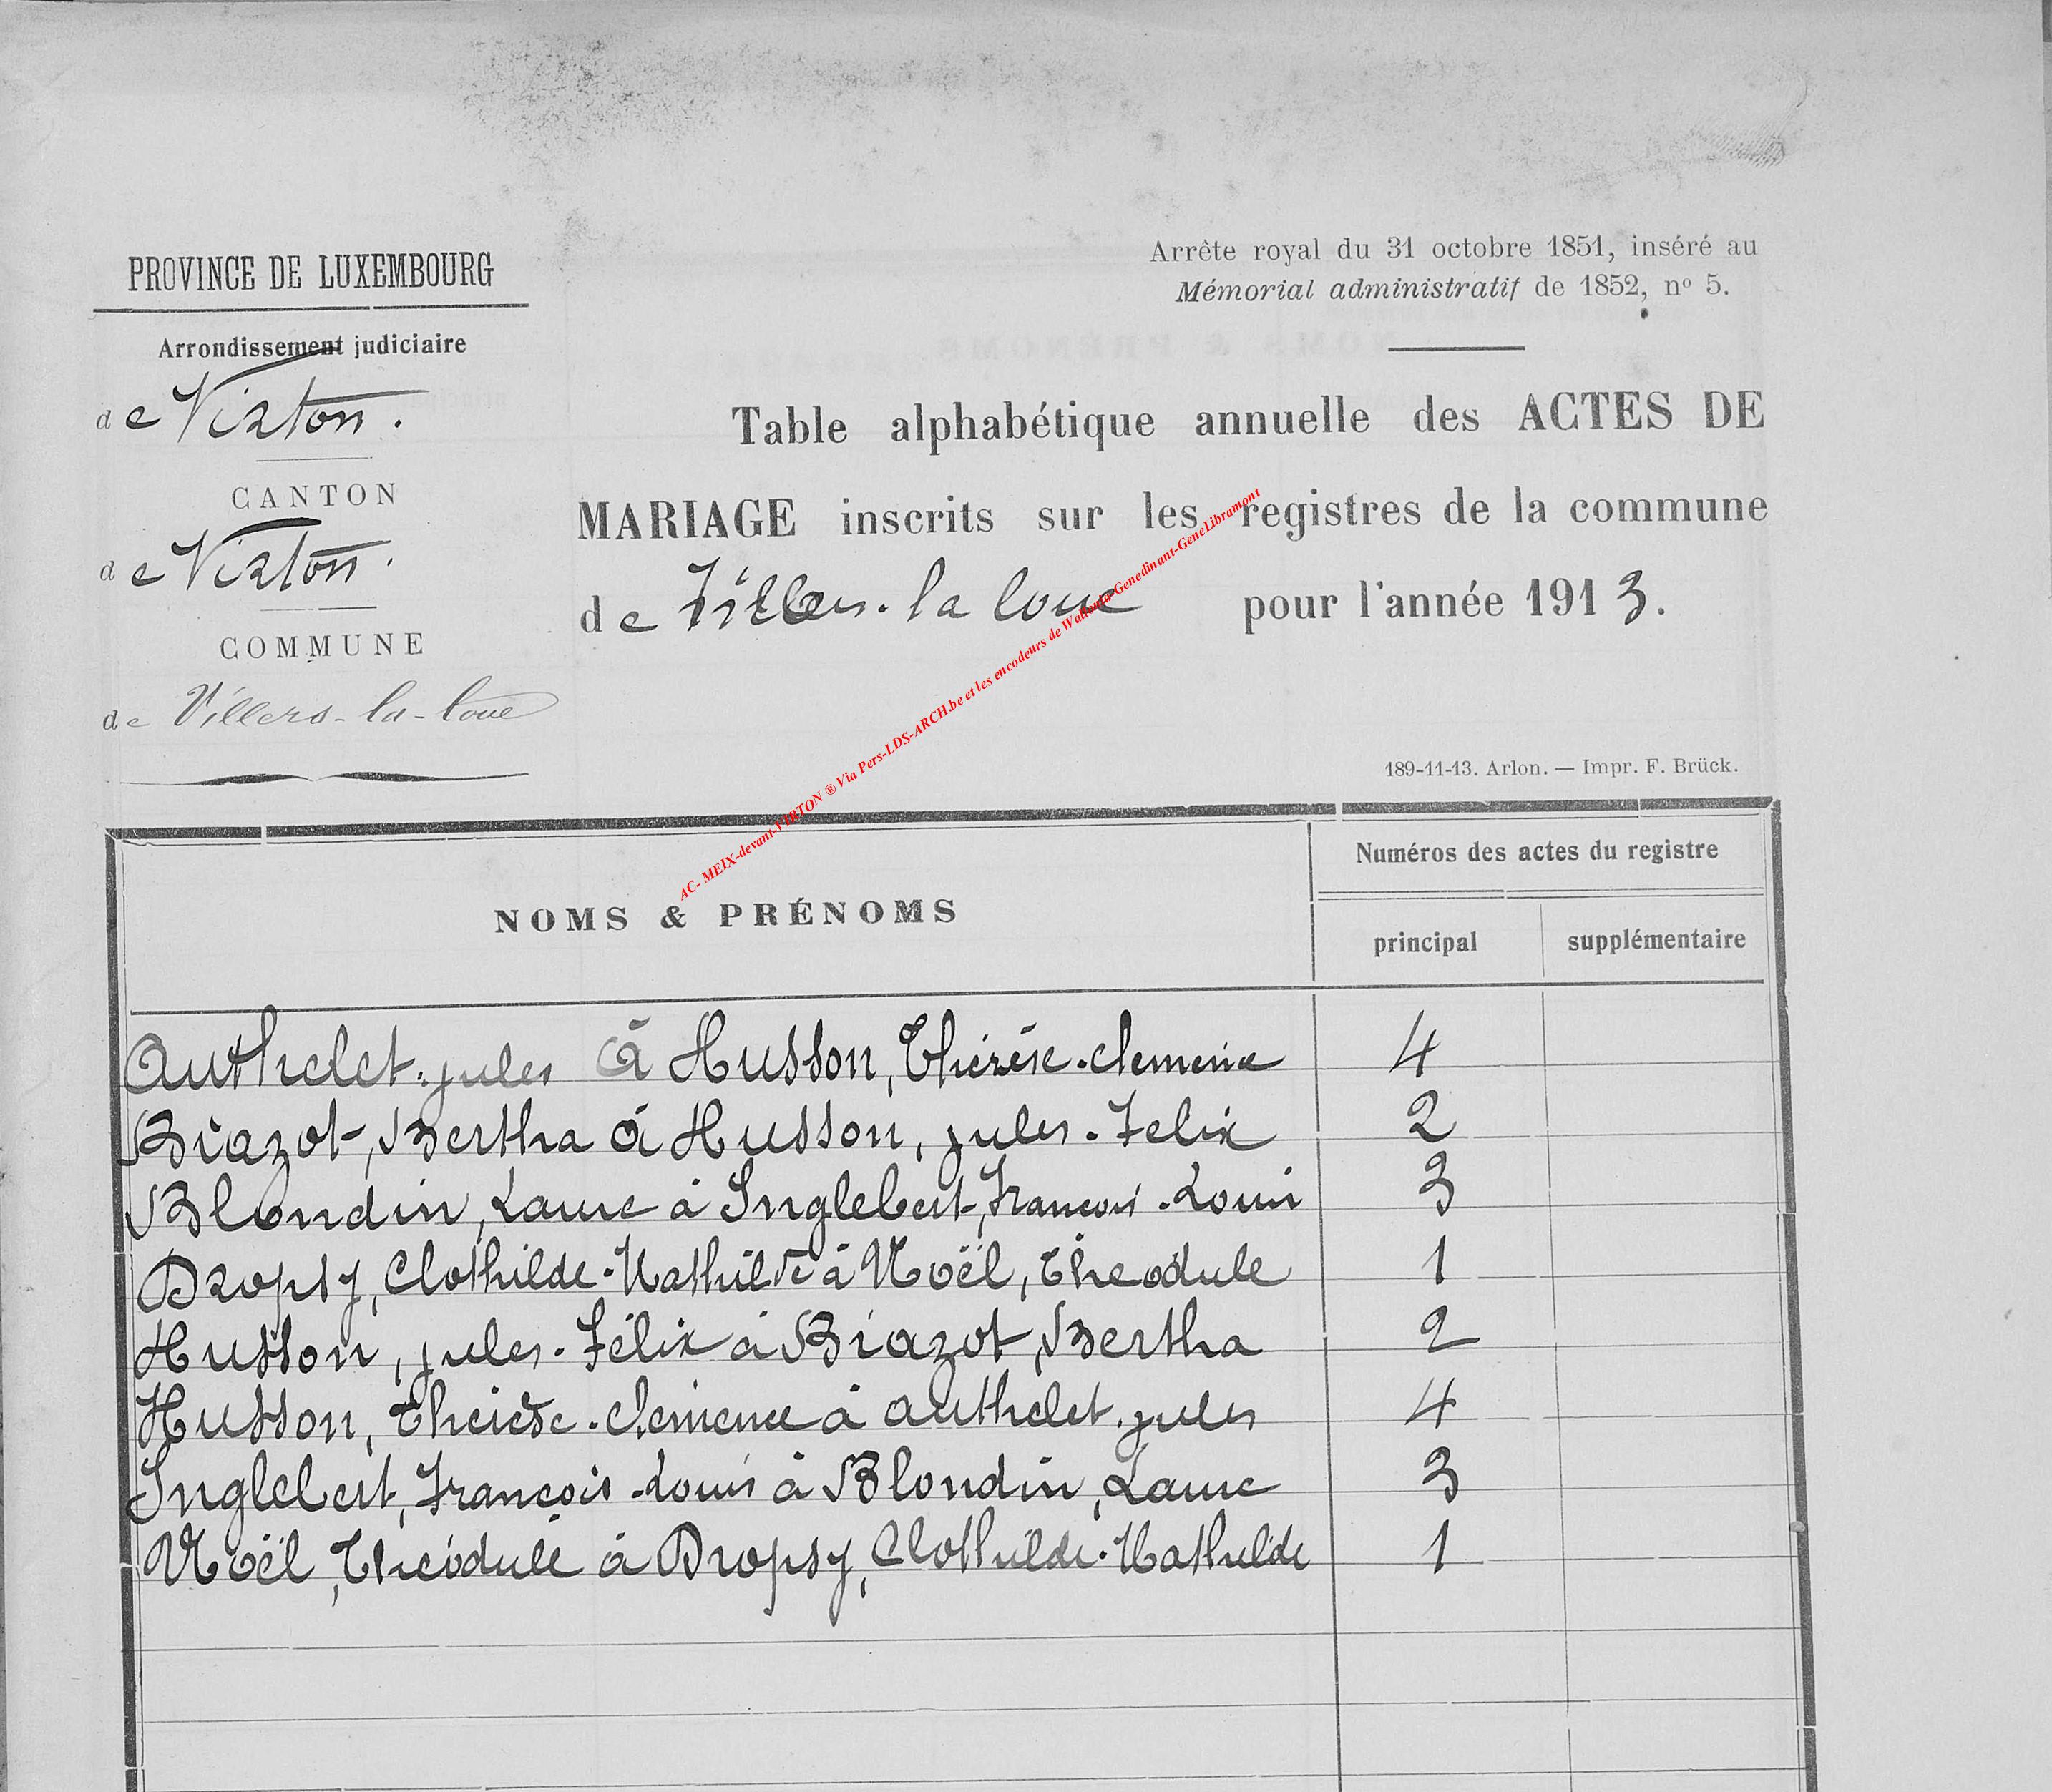 PROVINCE DE LUXEMBOURG
Arrondissement judiciaire
de Virton.
CANTON
de Virton.
COMMUNE
de Villers-la-loue
Arrête royal du 31 octobre 1851, inséré au
Mémorial administratif de 1852, nº 5.
Table alphabétique annuelle des ACTES DE
MARIAGE inscrits sur les registres de la commune
de Villers-la loue pour l'année 1913.
AC- MEIX-devant-VIRTON ® Via Pers-LDS-ARCH.be et les encodeurs de Wallonia-Genedinant-GeneLibramont
189-11-13. Arlon. — Impr. F. Brück.
NOMS & PRÉNOMS
Numéros des actes du registre
principal supplémentaire
Authelet. jules à Husson, Thérèse-clemence 4
Biazot, Bertha à Husson, jules-Felix 2
Blondin, Laure à Inglebert, Francois-Louis 3
Dropsy, Clothilde-Mathilde à Noël, Théodule 1
Husson, jules-Félix à Biazot, Bertha 2
Husson, Thérèse-clemence à authelet. jules 4
Inglebert, François-Louis à Blondin, Laure 3
Noël, Théodule à Dropsy, Clothilde-Mathilde 1